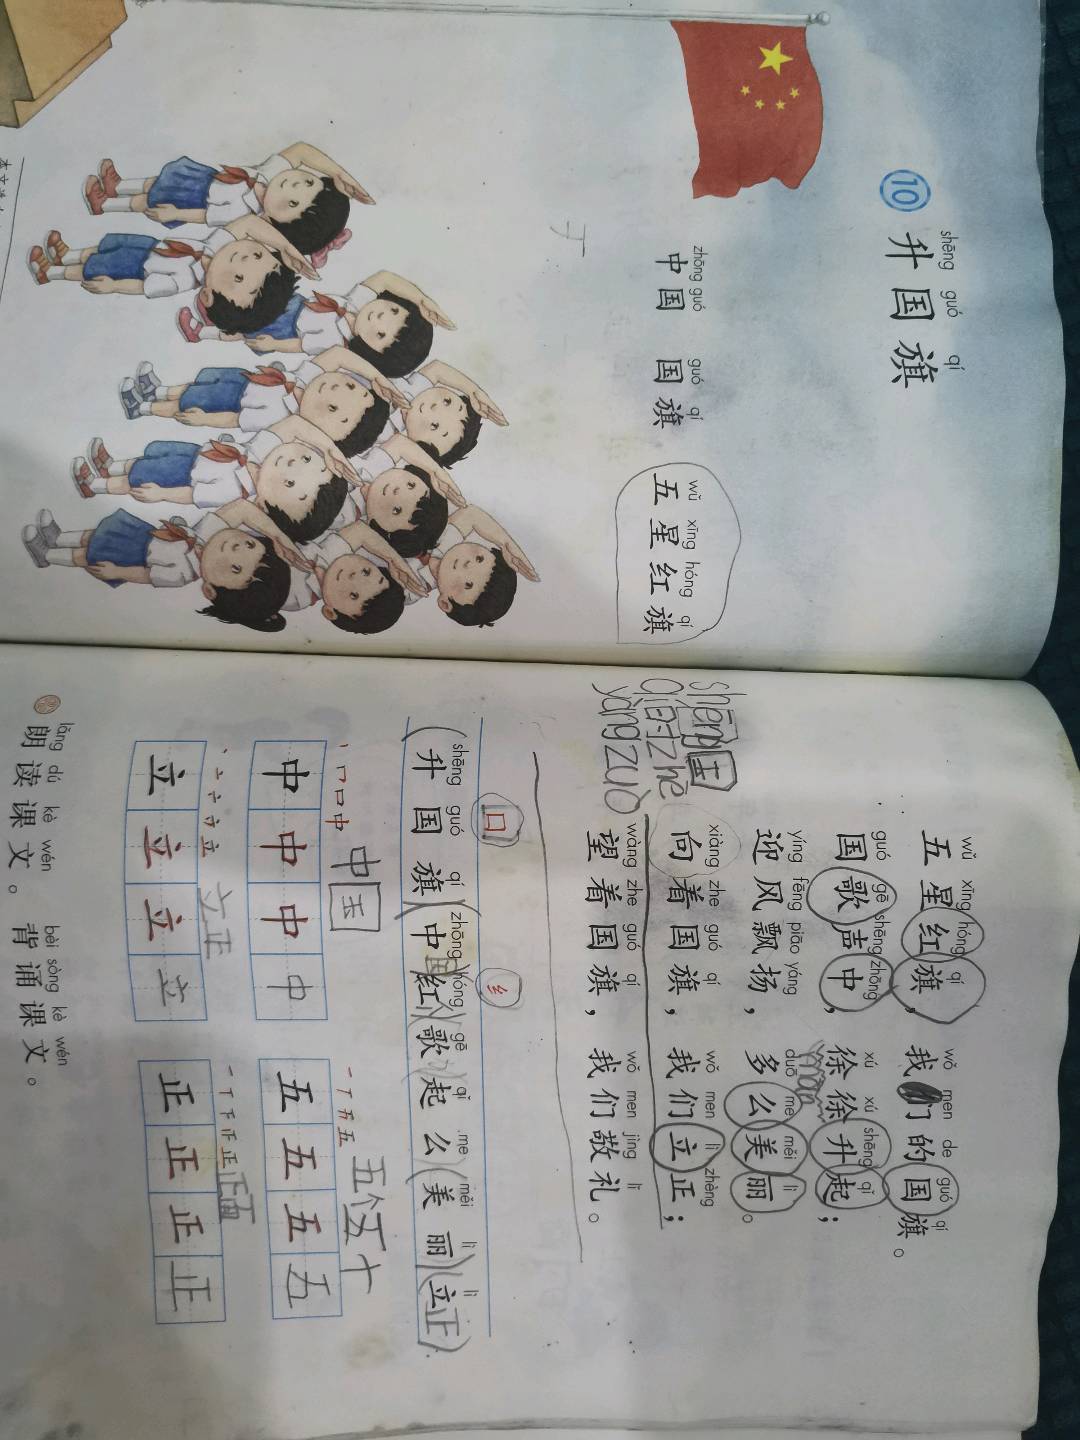 ⑩
shēng guó qí
升国旗
zhōng guó guó qí wǔ xīng hóng qí
中国 国旗 五星红旗
wǔ xīng hóng qí wǒ men de guó qí
五星红旗，我们的国旗。
guó gē shēng zhōng xú xú shēng qǐ
国歌声中，徐徐升起；
màn
yíng fēng piāo yáng duō me měi lì
迎风飘扬，多么美丽。
xiàng zhe guó qí wǒ men lì zhèng
向着国旗，我们立正；
wàng zhe guó qí wǒ men jìng lǐ
望着国旗，我们敬礼。
口 纟
shēng guó qí zhōng hóng gē qǐ me měi lì lì
升国旗中红歌起么美丽立正
中国 五个五十
中中中中 五五五五
立正 正面
立立立立 正正正正
lǎng dú kè wén bèi sòng kè wén
朗读课文。背诵课文。